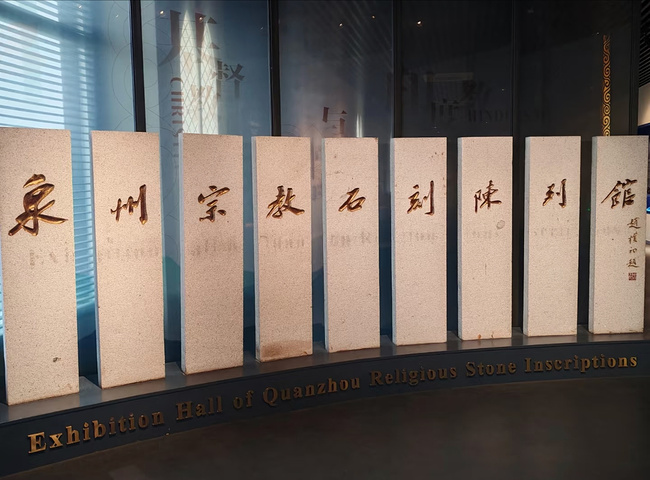 泉州宗教石刻陳列館
趙樸初題
Exhibition Hall of Quanzhou Religious Stone Inscriptions